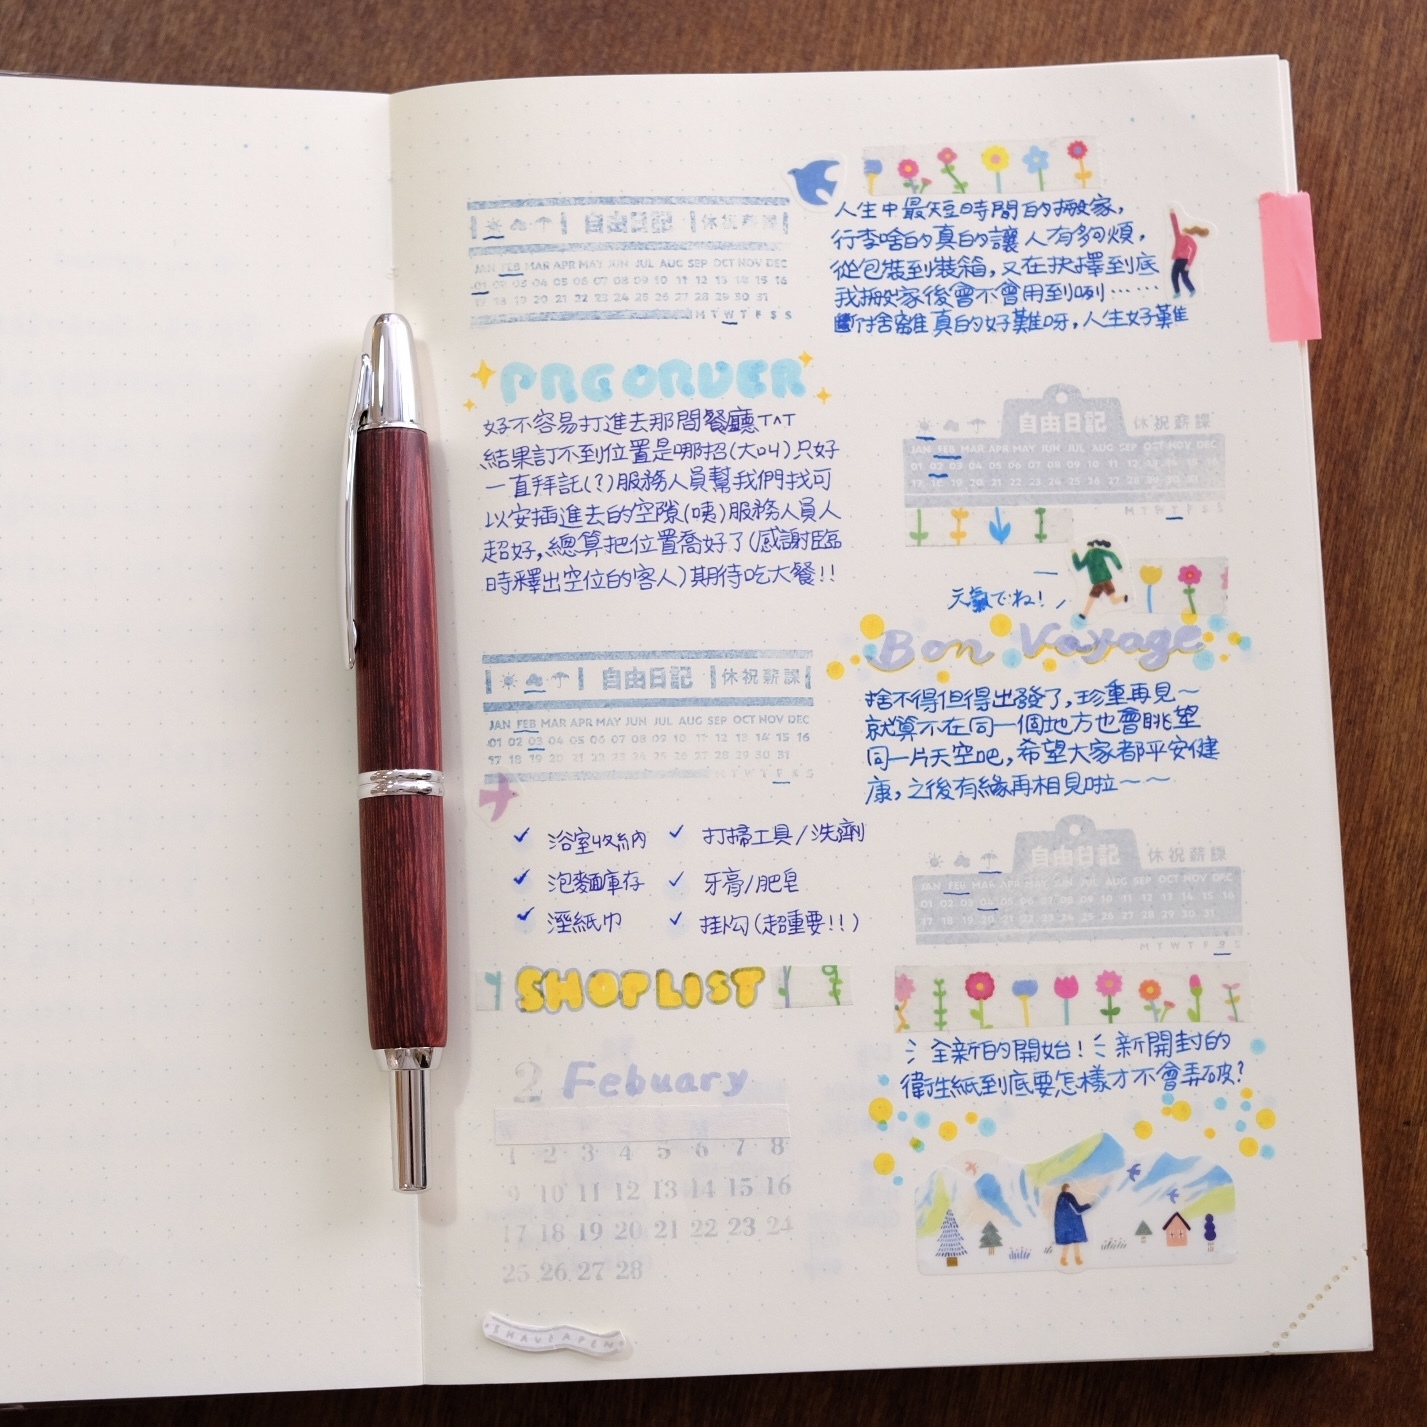 自由日記 休祝薪課
JAN FEB MAR APR MAY JUN JUL AUG SEP OCT NOV DEC
01 02 03 04 05 06 07 08 09 10 11 12 13 14 15 16
17 18 19 20 21 22 23 24 25 26 27 28 29 30 31
M T W T F S S
PREORDER
好不容易打進去那間餐廳T^T
結果訂不到位置是哪招(大叫)只好
一直拜託(?)服務人員幫我們找可
以安插進去的空隙(咦)服務人員人
超好,總算把位置喬好了(感謝臨
時釋出空位的客人)期待吃大餐!!
自由日記 休祝薪課
JAN FEB MAR APR MAY JUN JUL AUG SEP OCT NOV DEC
01 02 03 04 05 06 07 08 09 10 11 12 13 14 15 16
17 18 19 20 21 22 23 24 25 26 27 28 29 30 31
M T W T F S S
✓ 浴室收納 ✓ 打掃工具/洗劑
✓ 泡麵庫存 ✓ 牙膏/肥皂
✓ 溼紙巾 ✓ 挂勾(超重要!!)
SHOPLIST
2 Febuary
1 2 3 4 5 6 7 8
9 10 11 12 13 14 15 16
17 18 19 20 21 22 23 24
25 26 27 28
人生中最短時間的搬家,
行李啥的真的讓人有夠煩,
從包裝到裝箱,又在抉擇到底
我搬家後會不會用到咧……
斷捨離真的好難呀,人生好難
自由日記 休祝薪課
JAN FEB MAR APR MAY JUN JUL AUG SEP OCT NOV DEC
01 02 03 04 05 06 07 08 09 10 11 12 13 14 15 16
17 18 19 20 21 22 23 24 25 26 27 28 29 30 31
M T W T F S S
元氣でね!
Bon Voyage
捨不得但得出發了,珍重再見~
就算不在同一個地方也會眺望
同一片天空吧,希望大家都平安健
康,之後有緣再相見啦~~
自由日記 休祝薪課
JAN FEB MAR APR MAY JUN JUL AUG SEP OCT NOV DEC
01 02 03 04 05 06 07 08 09 10 11 12 13 14 15 16
17 18 19 20 21 22 23 24 25 26 27 28 29 30 31
M T W T F S S
全新的開始! 新開封的
衛生紙到底要怎樣才不會弄破?